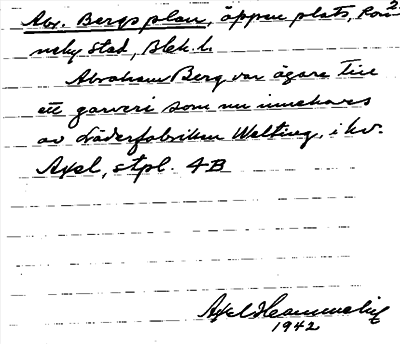 Abr. Bergs plan, öppen plats, Ron-
neby stad, Blek. l.
Abraham Berg var ägare till
ett garveri som nu innehaves
av Läderfabriken Welting, i kv.
Axel, stpl. 4B
Axel
1942